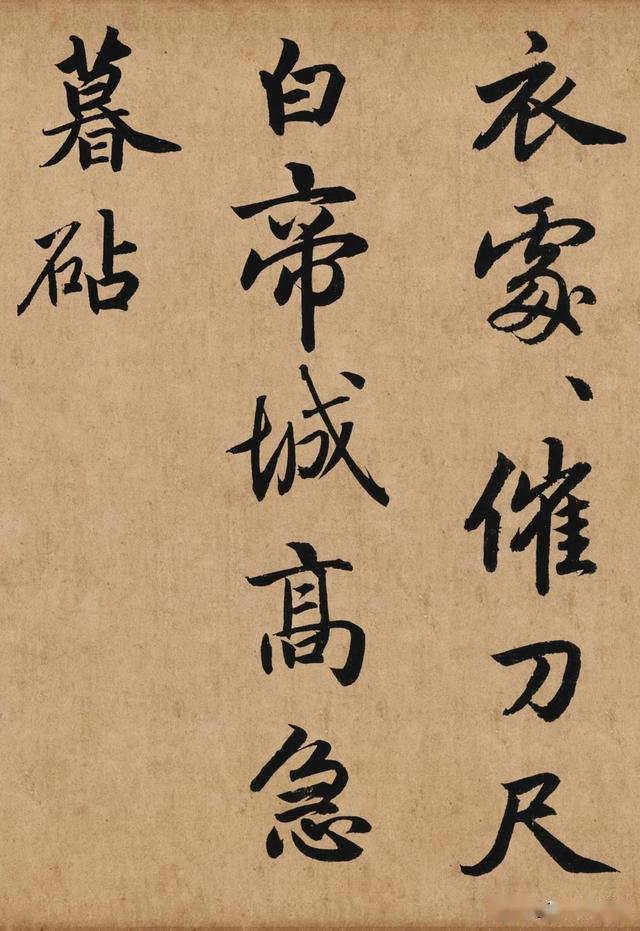 衣處、催刀尺
白帝城高急
暮砧